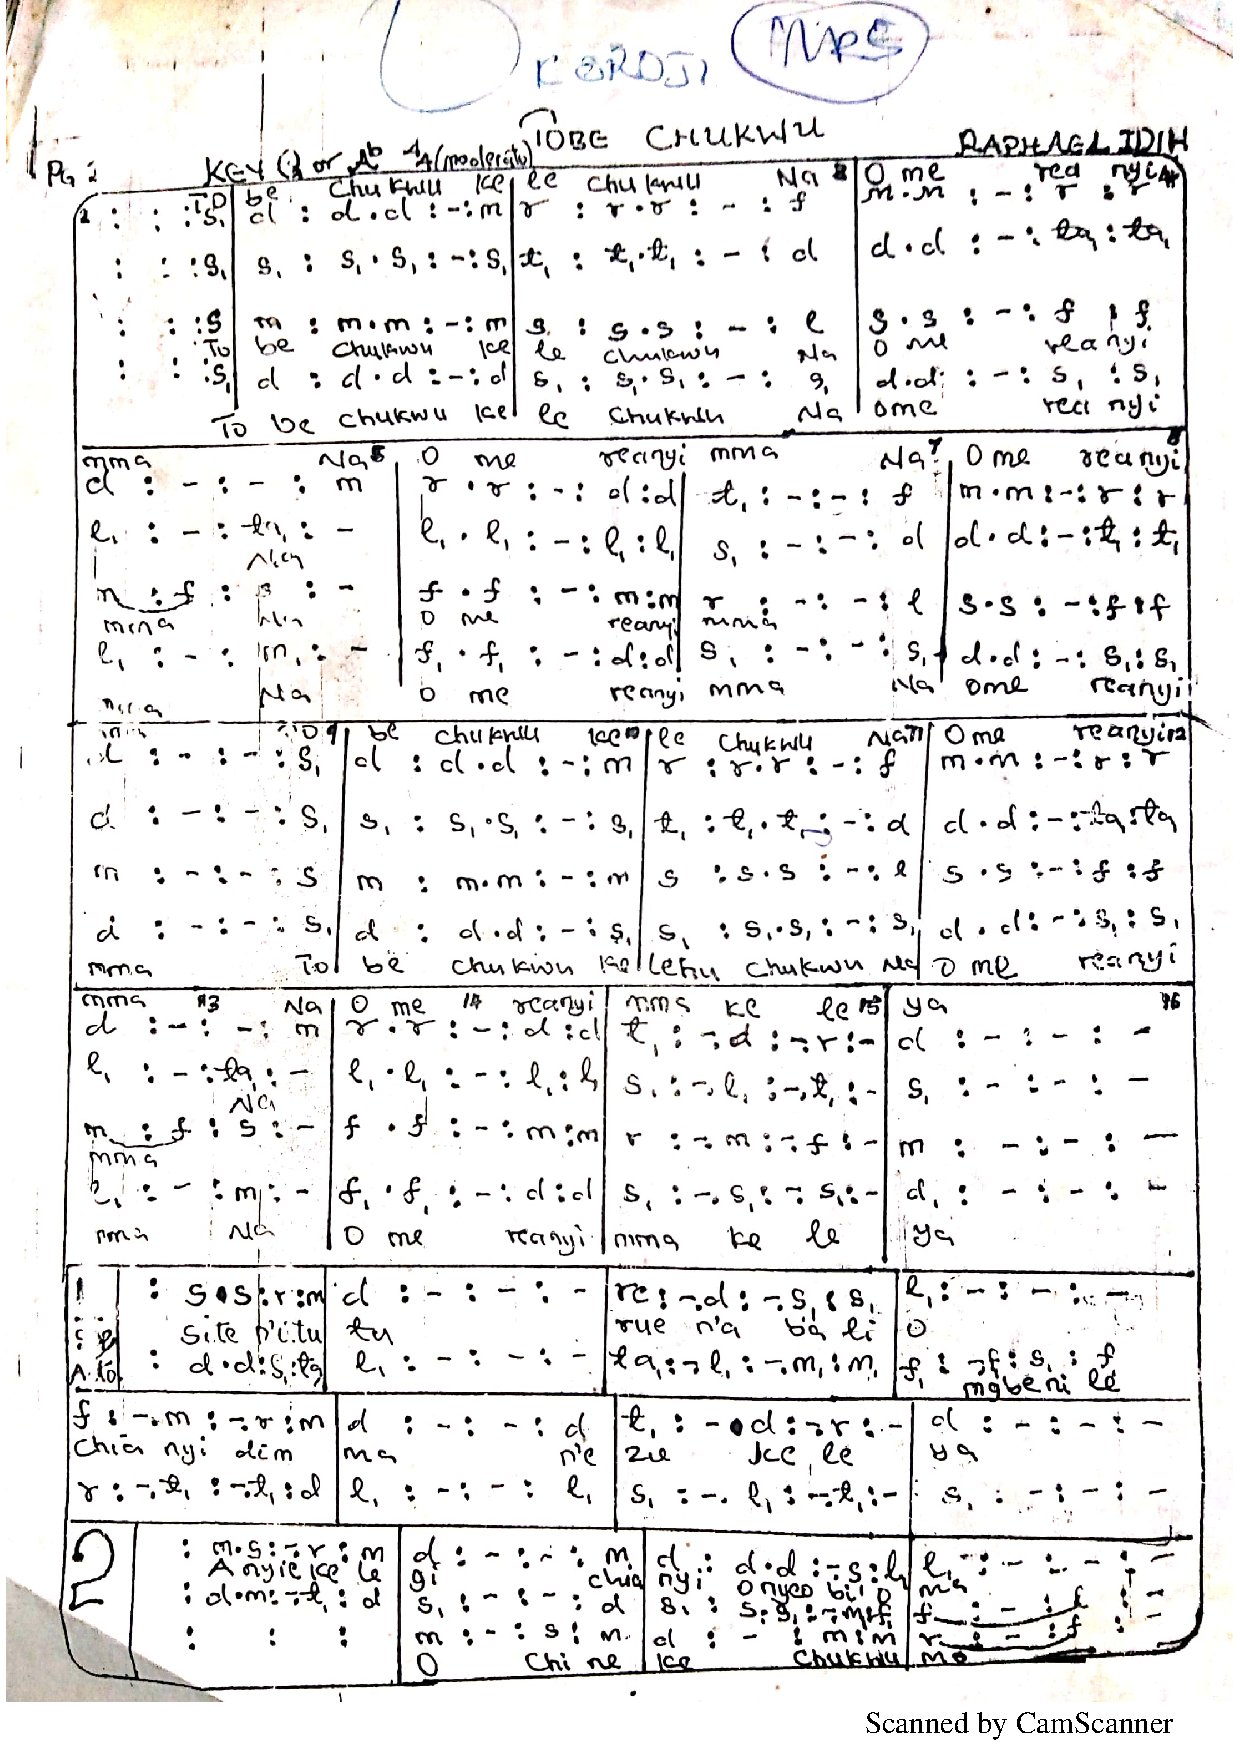 OKEROJI MRS
TOBE CHUKWU
RAPHAEL IDIH
KEY G or Ab 4/4 (moderato)
To be Chukwu ke le Chukwu Na O me rea nyi
: : :s₁ d : d.d : -:m r : r.r : - : f m.m : -: r : r
: : :s₁ s₁ : s₁.s₁ : -:s₁ t₁ : t₁.t₁ : - : d d.d : -: ta₁ : ta₁
: : :s m : m.m : -: m s : s.s : -: l s.s : -: f : f
To be Chukwu ke le Chukwu Na O me reanyi
: : :s₁ d : d.d : -: d s₁ : s₁.s₁ : - : s₁ d.d : -: s₁ : s₁
To be Chukwu ke le Chukwu Na ome rea nyi
mma Na O me reanyi mma Na O me reanyi
d : - : - : m r . r : -: d : d t₁ : -: -: f m.m : -: r : r
l₁ : -: ta₁ : - l₁ . l₁ : -: l₁ : l₁ s₁ : -: -: d d.d : -: t₁ : t₁
Na
m : f : s : - f . f : -: m : m r : -: -: l s.s : -: f : f
mma Na O me reanyi mma
l₁ : -: m₁ : - f₁ . f₁ : -: d : d s₁ : -: -: s₁ d.d : -: s₁ : s₁
mma Na O me reanyi mma Na ome reanyi
mma To be Chukwu ke le Chukwu Na O me reanyi
d : -: -: s₁ d : d.d : -: m r : r.r : -: f m.m : -: r : r
d : -: -: s₁ s₁ : s₁.s₁ : -: s₁ t₁ : t₁.t₁ : -: d d.d : -: ta₁ : ta₁
m : -: -: s m : m.m : -: m s : s.s : -: l s.s : -: f : f
d : -: -: s₁ d : d.d : -: s₁ s₁ : s₁.s₁ : -: s₁ d.d : -: s₁ : s₁
mma To be Chukwu ke Lenu Chukwu Na O me reanyi
mma 13 Na O me 14 reanyi mma ke le 15 ya 16
d : -: -: m r.r : -: d : d t₁ : -. d : -. r : - d : -: -: -
l₁ : -: ta₁ : - l₁.l₁ : -: l₁ : l₁ s₁ : -. l₁ : -. t₁ : - s₁ : -: -: -
Na
m : f : s : - f . f : -: m : m r : -. m : -. f : - m : -: -: -
mma
l₁ : - : m₁ : - f₁ . f₁ : -: d : d s₁ : -. s₁ : -. s₁ : - d₁ : -: -: -
mma Na O me reanyi mma ke le ya
1 : s.s : r : m d : -: -: - re : -. d : -. s₁ : s₁ l₁ : -: -: -
site n'itu tu rue n'a ba li O
A to : d.d : s₁ : ta₁ l₁ : -: -: - ta₁ : -. l₁ : -. m₁ : m₁ f₁ : -. f₁ : s₁ : f
mgbe ni le
f : -. m : -. r : m d : -: -: d t₁ : -. d : -. r : - d : -: -: -
Chia nyi dim ma n'e zu ke le ya
r : -. t₁ : -. t₁ : d l₁ : -: -: l₁ s₁ : -. l₁ : -. t₁ : - s₁ : -: -: -
2 : m.s : -. r : m d : -: -: m d : d.d : -. s₁ : l₁ l₁ : -: -: -
Anyi e ke le gi chia nyi Onyeo bi O ma
: d.m : -. t₁ : d s₁ : -: -: d
: : : m : -: s : m d : -: m : m
O Chi ne ke Chukwu mo
Scanned by CamScanner